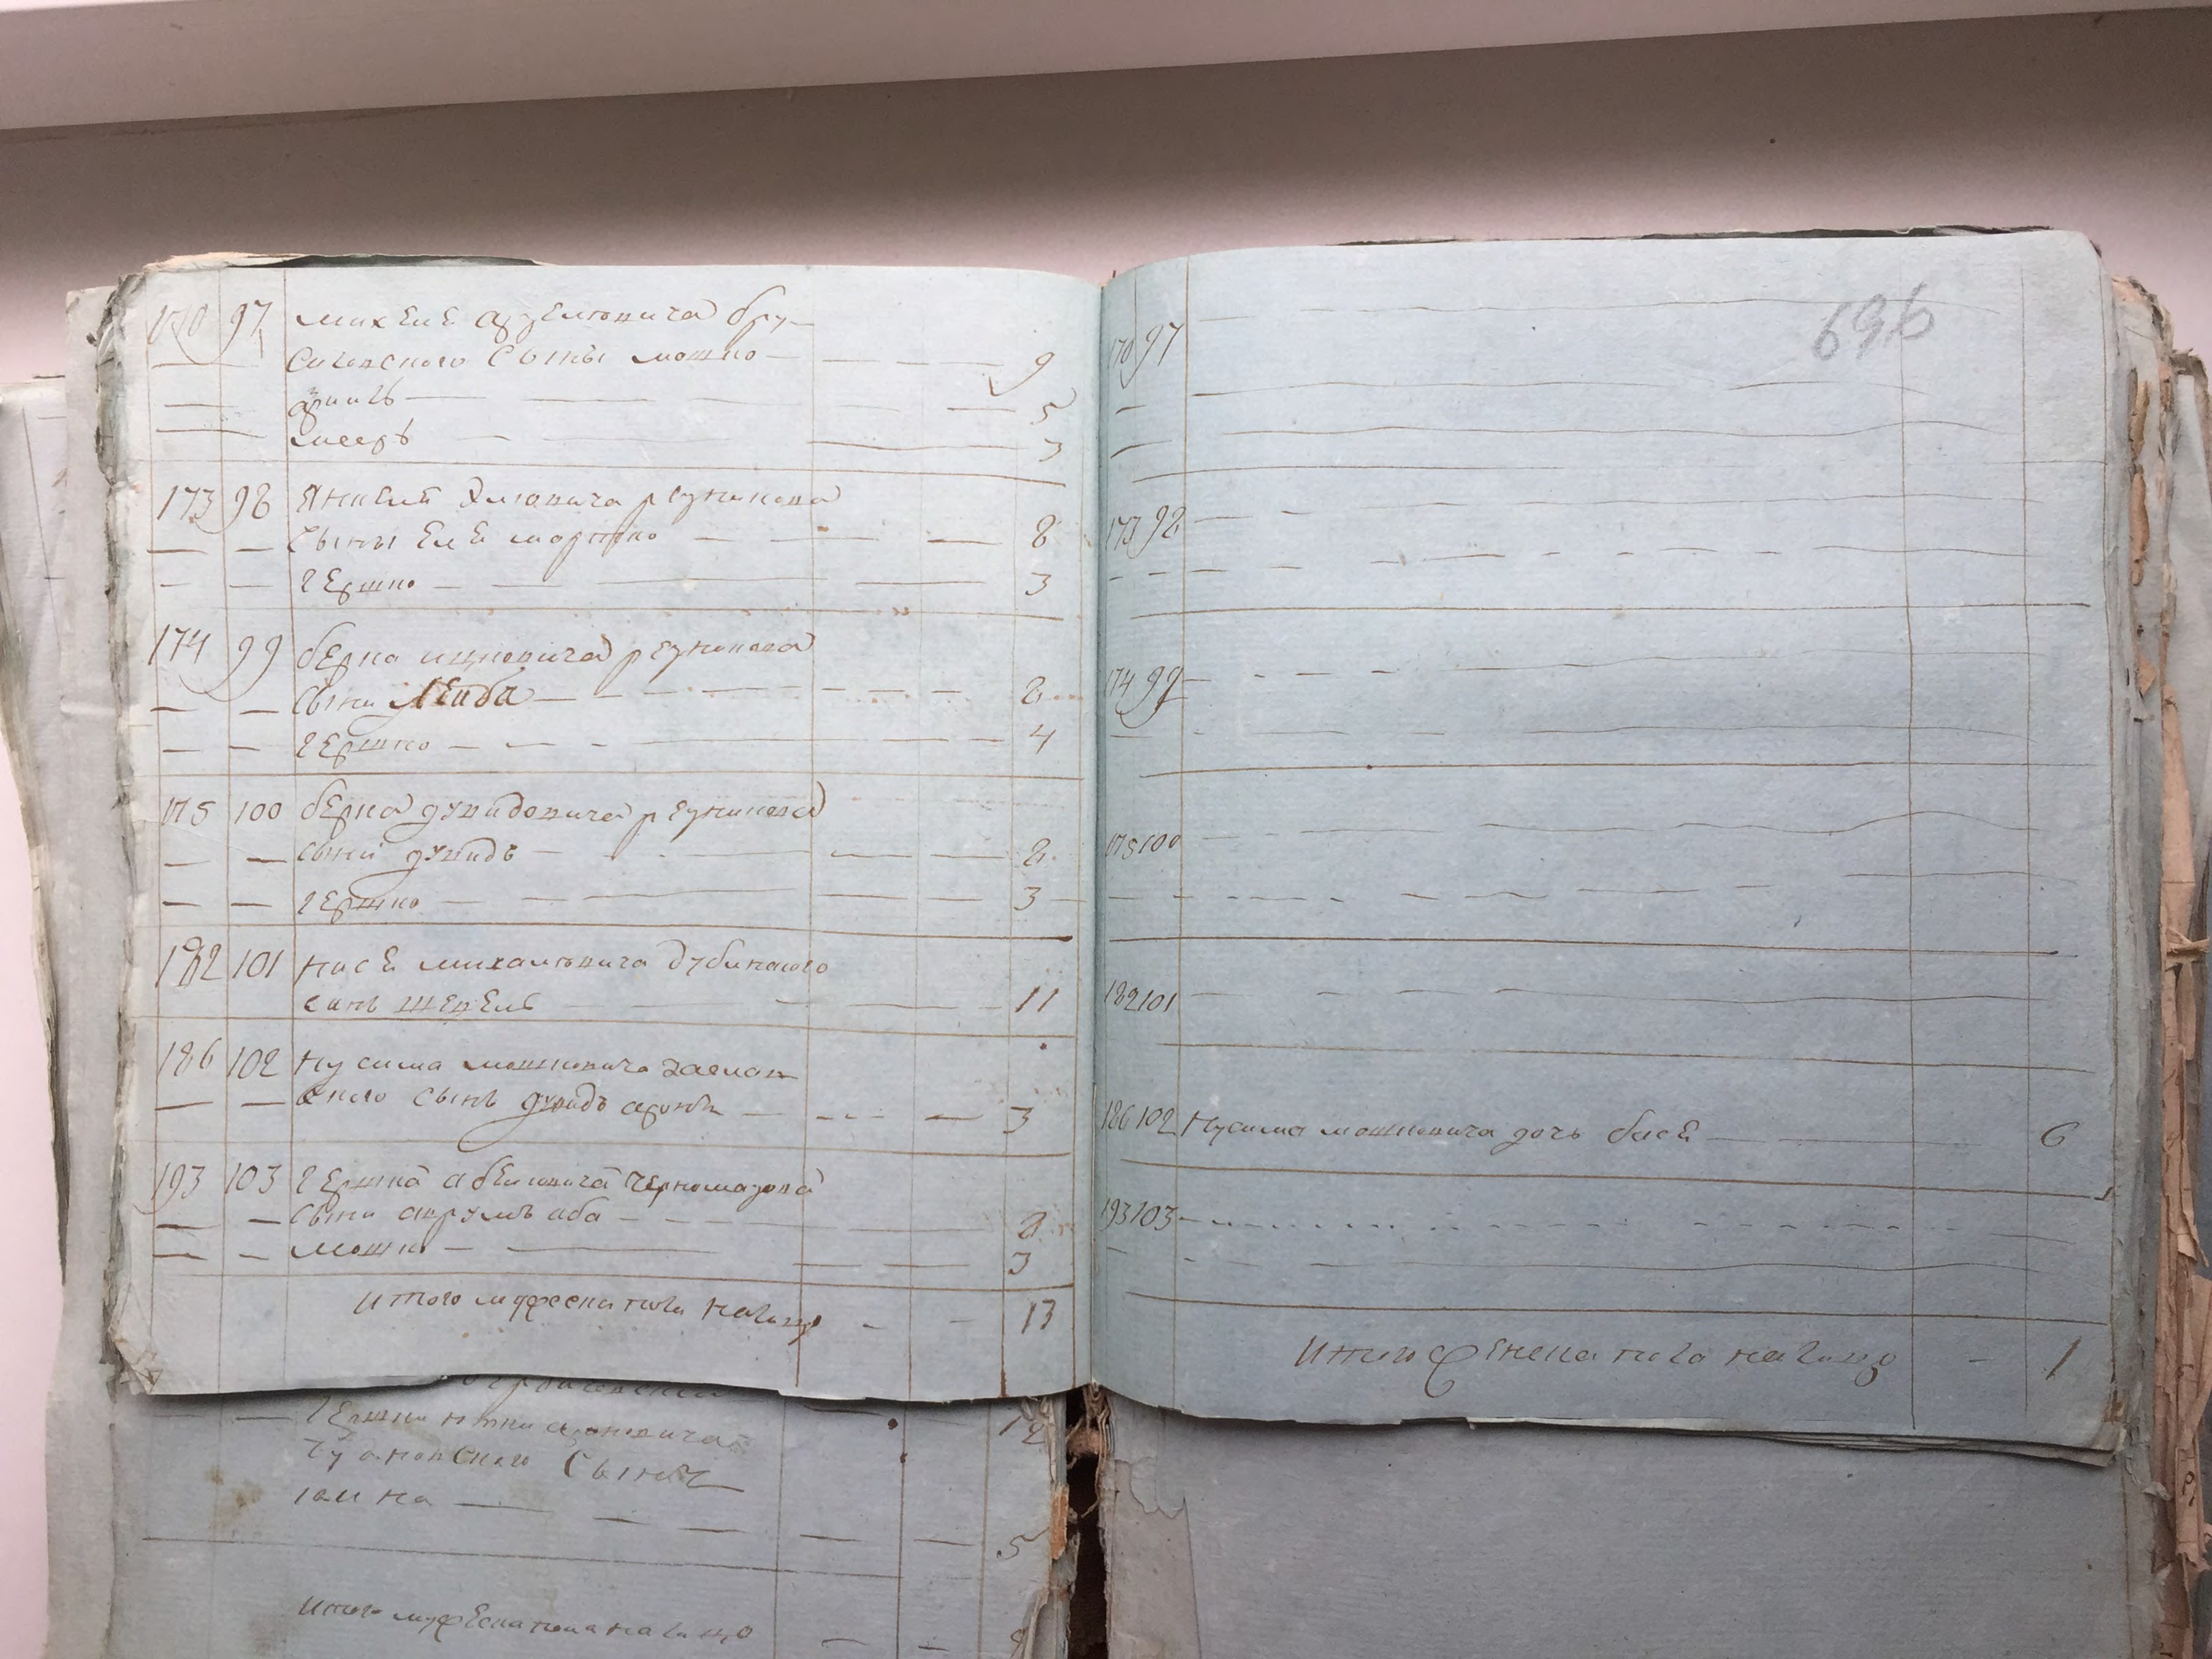 170 97 Михеле Арземовича Бру-
силовского сыны мошко — 9
5
меерь — 3
173 98 Янкеля Элiовича резникова
— — сыны Еле мортко — 8
— — гершко — 3
174 99 берка ицковича резникова
— — сыни Лейба — 8
— — гершко — 4
175 100 берка дувидовича резникова
— — сыни дувидъ — 8
— — гершко — 3
182 101 михамовича дубинского
сынъ шепель — 11
186 102 Нусима мошковича заслав
— — ского сынъ дувидъ аронъ — 3
193 103 гершка абелiовича черномазова
— — сыни аврумъ аба — 8
— — мошко — 3
Итого мужеска пола налицо — — 13
гершки ароновича
сына
5
Итого мужеска пола налицо — —
696
170 97
173 98
174 99
175 100
182 101
186 102 Нусима мошковича дочь басе — 6
193 103
Итого женска пола налицо — 1